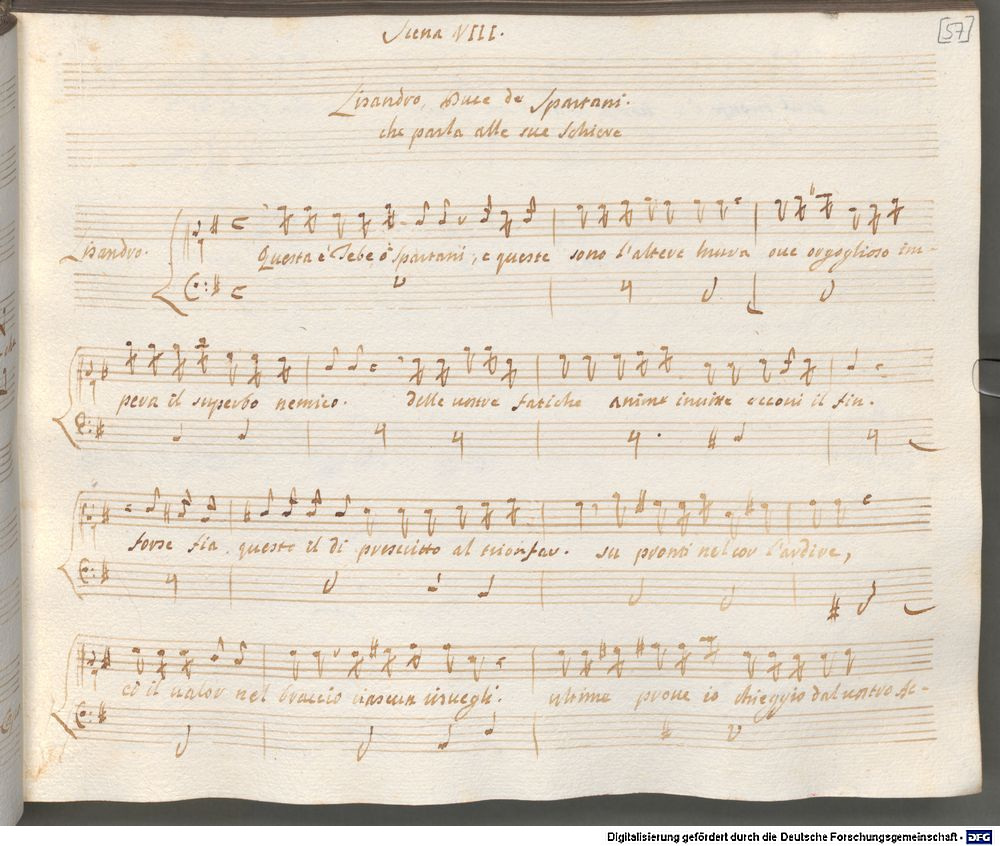 Scena VIII.
[57]
Lisandro, Duce de Spartani.
che parla alle sue schiere
Lisandro.
Questa è Tebe, ò Spartani, e queste sono l'altere mura oue orgoglioso im-
pera il superbo nemico. delle uostre fatiche anime inuitte eccoui il fin.
forse fia questo il di prescritto al trionfar. su pronti nel cor l'ardire,
ed il ualor nel braccio ciascun risuegli. ultime proue io chieggio dal uostro Ac-
Digitalisierung gefördert durch die Deutsche Forschungsgemeinschaft - DFG